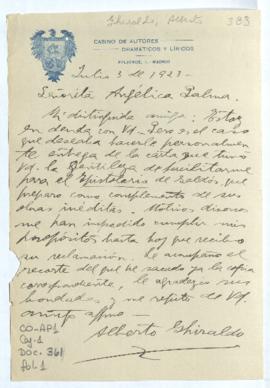 Ghiraldo, Alberto
383
CASINO DE AUTORES
DRAMÁTICOS Y LÍRICOS
MADRID
Julio 3 de 1923.
Señorita Angélica Palma.
Mi distinguida amiga: Estoy
en deuda con Vd. Pero es el caso
que deseaba hacerle personalmen-
te entrega de la carta que tuvo
Vd. la gentileza de facilitarme
para el Epistolario de Galdós, que
preparo como complemento de sus
obras inéditas. Motivos diversos
me han impedido cumplir mis
propósitos hasta hoy que recibo
su reclamación. Le acompaño el
recorte del que he sacado ya la copia
correspondiente, le agradezco sus
bondades y me repito de Vd.
amigo affmo
Alberto Ghiraldo
CO-AP1
Caj-1
DOC. 361
fol-1